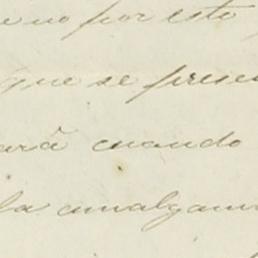 no por esto
que se presen
ará cuando
la amalgama